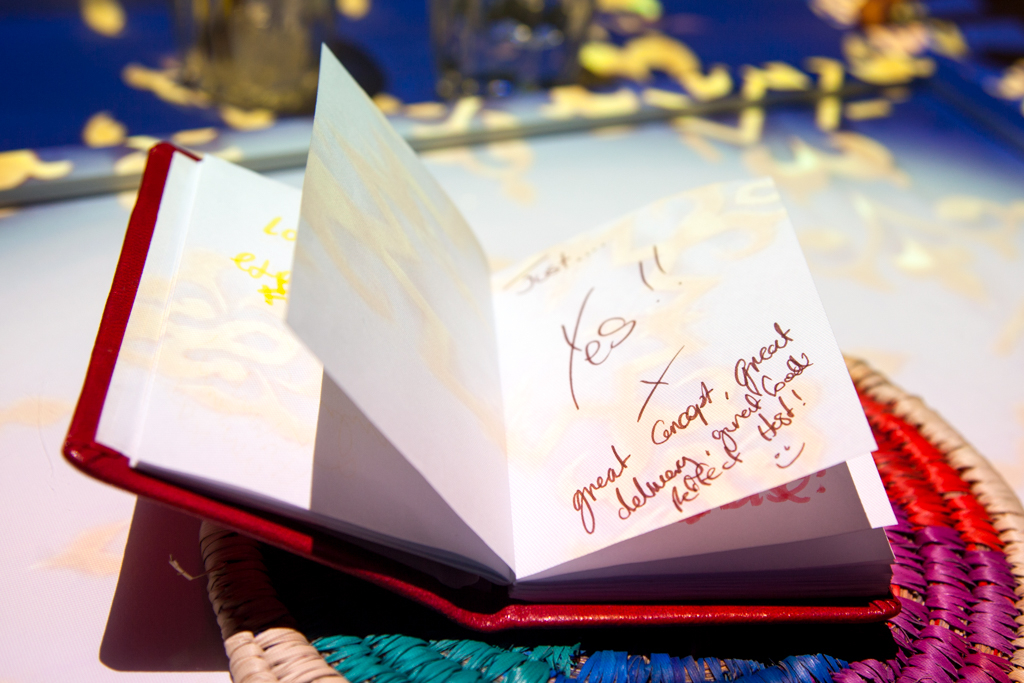 Just...
Yes!!
X
great Concept, great
delivery, great Food
Perfect Host!
:)